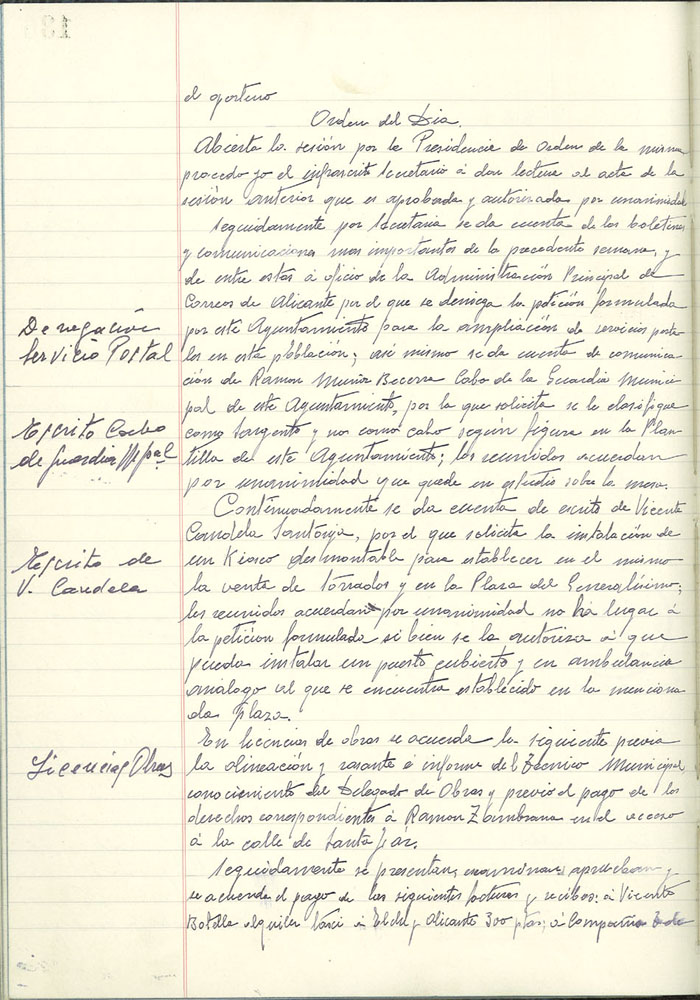 el oportuno
Orden del Dia.
Abierta la sesión por la Presidencia de Orden de la misma
procedo yo el infrascrito Secretario á dar lectura al acta de la
sesión anterior que es aprobada y autorizada por unanimidad
Seguidamente por Secretaria se da cuenta de los boletines
y comunicaciones mas importantes de la precedente semana, y
de entre estas á oficio de la Administración Principal de
Correos de Alicante por el que se deniega la petición formulada
Denegación
Servicio Postal
por este Ayuntamiento para la ampliación de servicios posta
les en esta población; asi mismo se da cuenta de comunica
ción de Ramon Muñoz Becerra Cabo de la Guardia Munici
pal de este Ayuntamiento, por la que solicita se le clasifique
Escrito Cabo
de guardia Mpal
como Sargento y no como cabo según figura en la Plan
tilla de este Ayuntamiento; los reunidos acuerdan
por unanimidad que quede en estudio sobre la mesa.
Continuadamente se da cuenta de escrito de Vicente
Candela Santonja, por el que solicita la instalación de
Escrito de
V. Candela
un Kiosco desmontable para establecer en el mismo
la venta de tórrados y en la Plaza del Generalísimo;
los reunidos acuerdan por unanimidad no há lugar á
la peticion formulada si bien se la autoriza á que
pueda instalar un puesto cubierto y en ambulancia
análogo al que se encuentra establecido en la menciona
da Plaza.
Licencias Obras
En licencias de obras se acuerda la siguiente previa
la alineación y rasante é informe del Técnico Municipal
conocimiento del Delegado de Obras y previo el pago de los
derechos correspondientes á Ramon Zambrana en el acceso
á la calle de Santa
Seguidamente se presentan, examinan, aprueban y
se acuerda el pago de las siguientes facturas y recibos: á Vicente
Botella alquiler taxi á Elche y Alicante 300 ptas; á Compañia